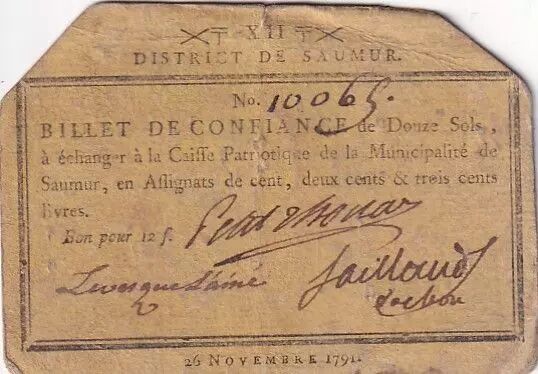 XII
DISTRICT DE SAUMUR.
No. 10065.
BILLET DE CONFIANCE de Douze Sols,
à échanger à la Caisse Patriotique de la Municipalité de
Saumur, en Assignats de cent, deux cents & trois cents
livres.
Bon pour 12 s. Petit thouars
Levesque L'ainé
26 NOVEMBRE 1791.